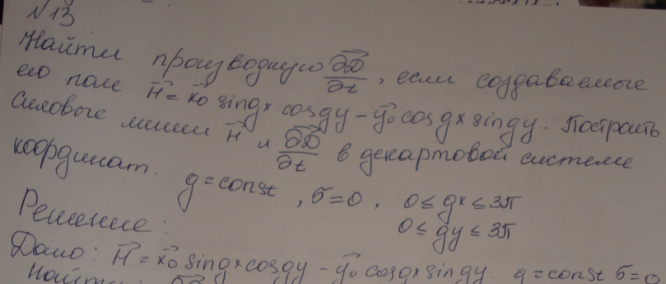 №13
Найти производную ∂D⃗/∂t, если создаваемые
его поле H⃗ = x⃗₀ sin gx · cos gy − y⃗₀ cos gx sin gy. Построить
силовые линии H⃗ и ∂D⃗/∂t в декартовой системе
координат. g = const, σ = 0, 0 ≤ gx ≤ 3π
0 ≤ gy ≤ 3π
Решение:
Дано: H⃗ = x⃗₀ sin gx cos gy − y⃗₀ cos gx sin gy. g = const σ = 0